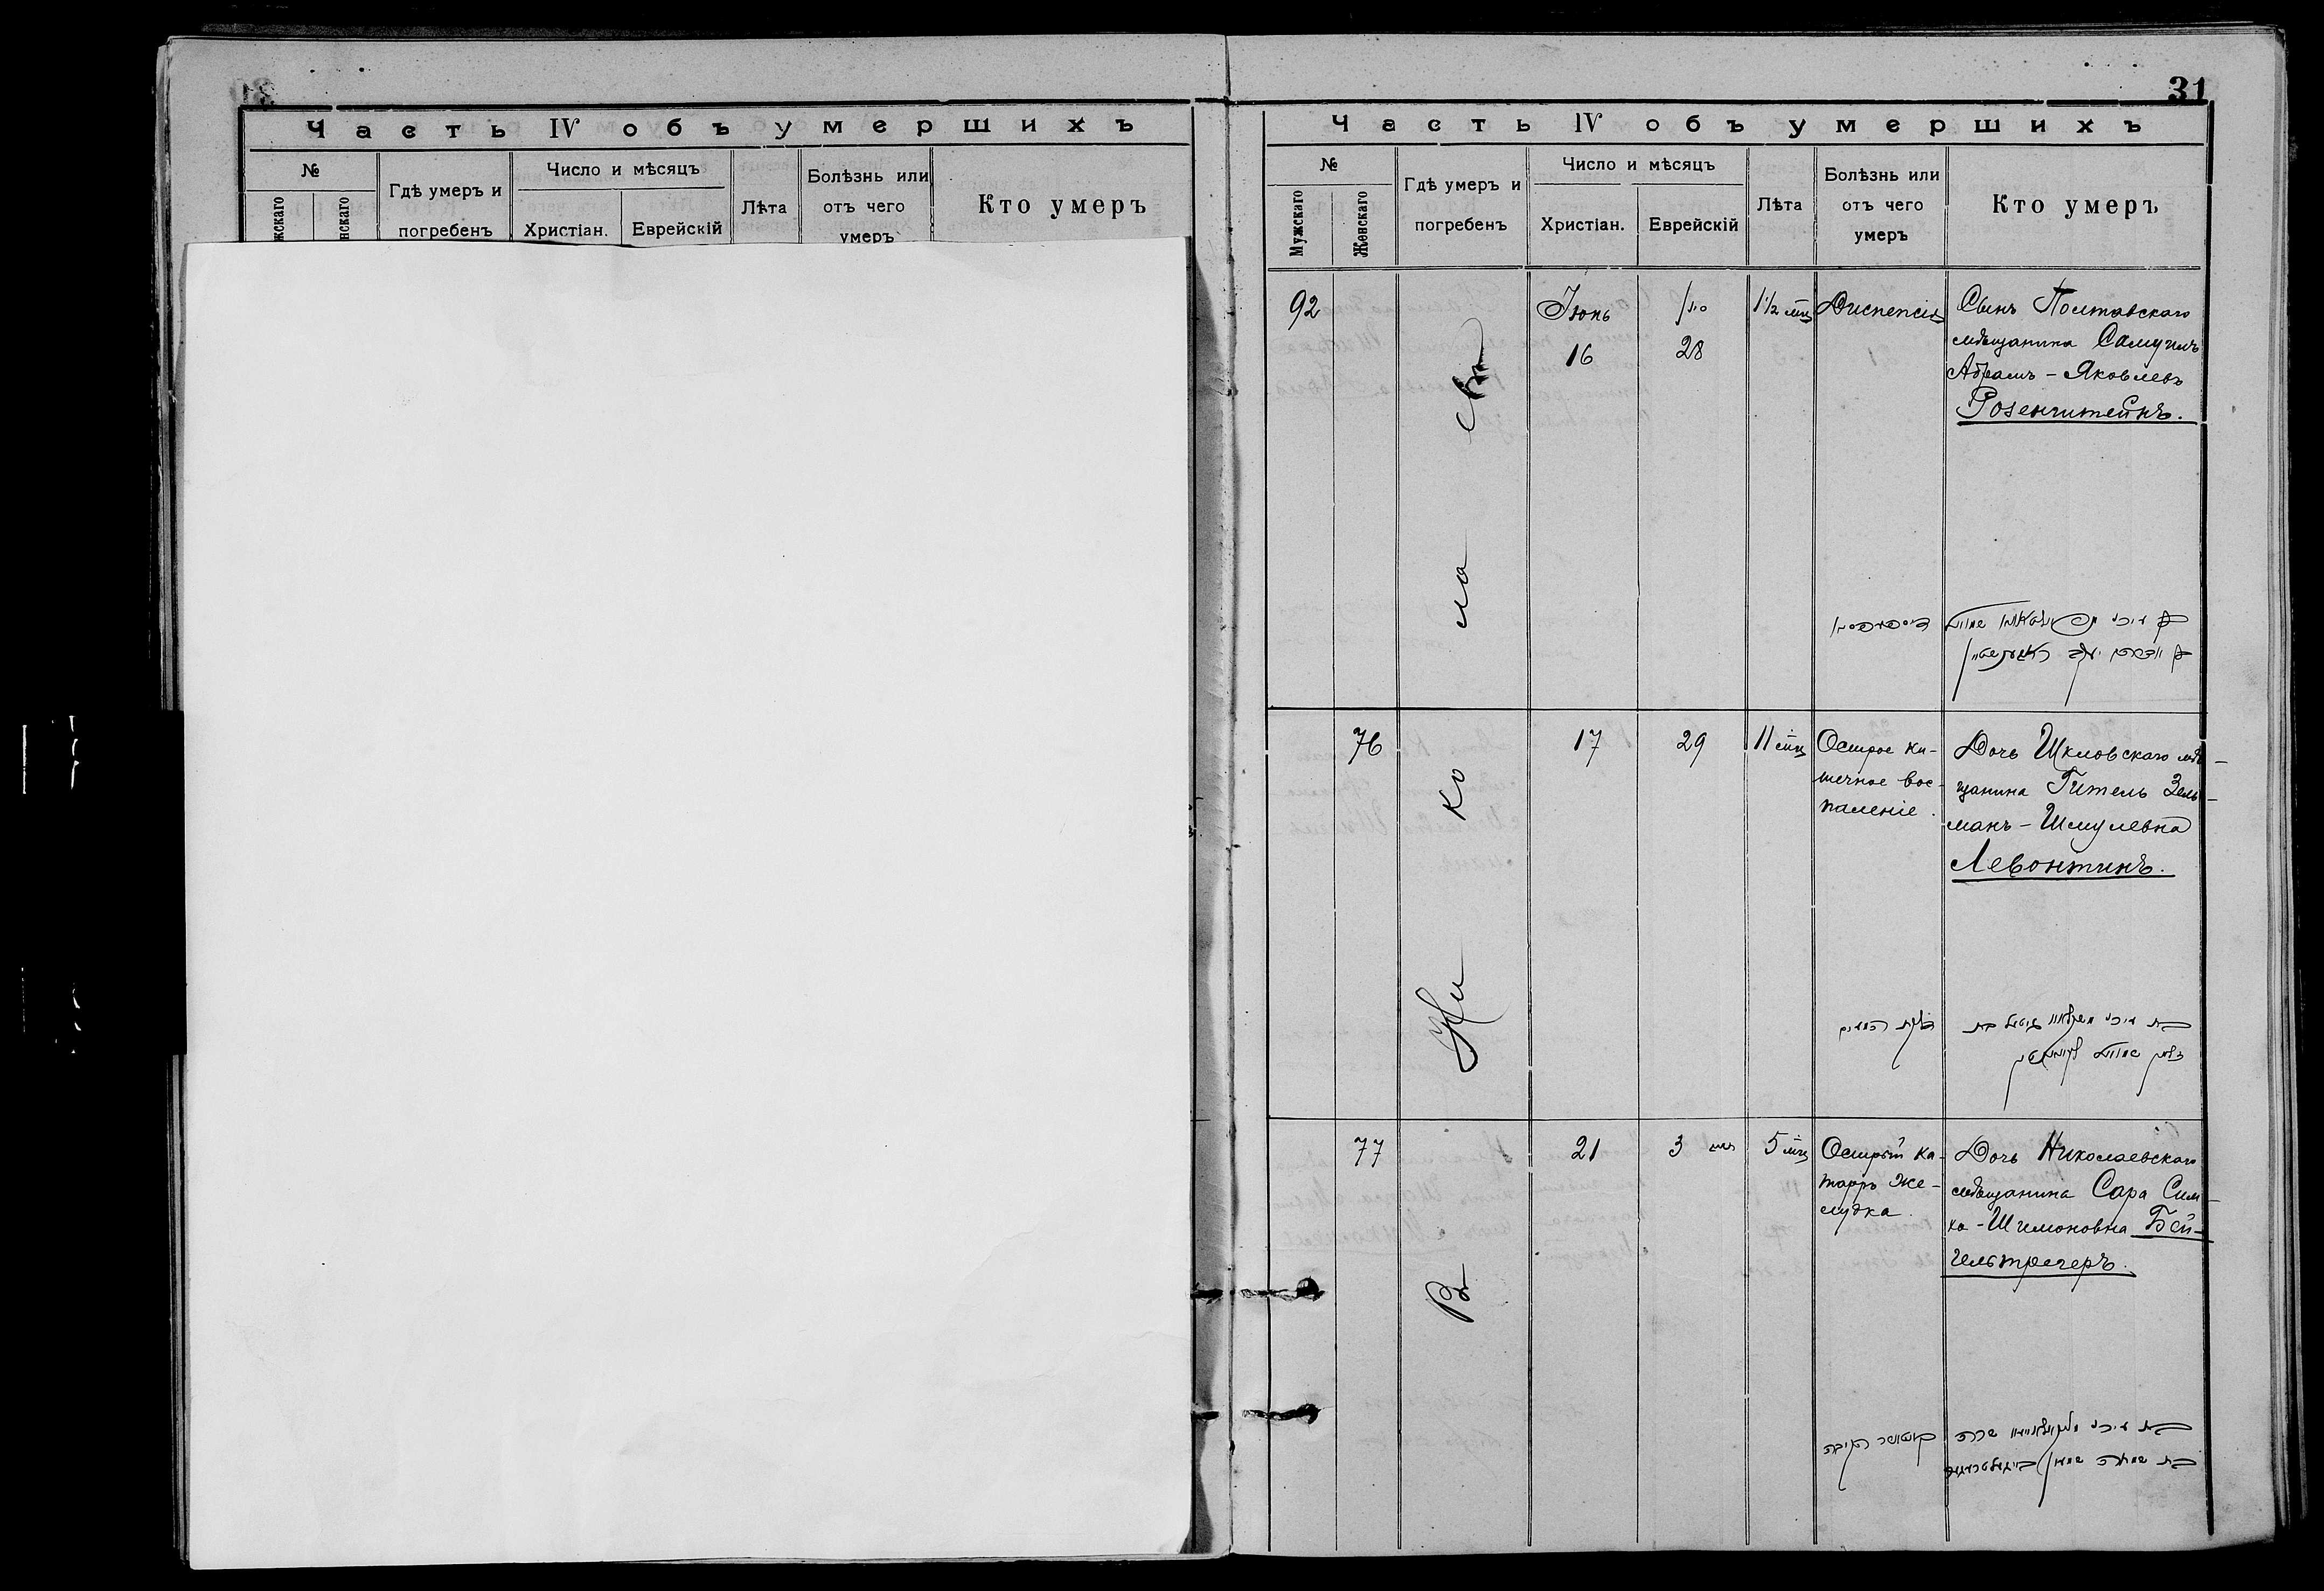 31
Часть IV объ умершихъ
№
Гдѣ умеръ и
погребенъ
Число и мѣсяцъ
Христіан.
Еврейскій
Лѣта
Болѣзнь или
отъ чего
умеръ
Кто умеръ
Часть IV объ умершихъ
№
Мужскаго
Женскаго
Гдѣ умеръ и
погребенъ
Число и мѣсяцъ
Христіан.
Еврейскій
Лѣта
Болѣзнь или
отъ чего
умеръ
Кто умеръ
Въ Николаевѣ
92
Іюнь
16
סיון
28
1½ мѣц
Диспепсія
Сынъ Полтавскаго
мѣщанина Самуилъ
Абрамъ-Яковлевъ
Розенштейнъ.
76
17
29
11 мѣц
Острое ки-
шечное вос-
паленіе.
Дочь Шкловскаго мѣ-
щанина Гитель Зель-
манъ-Шмулевна
Левонтинъ.
77
21
3 תמוז
5 мѣц
Острый ка-
тарръ же-
лудка.
Дочь Николаевскаго
мѣщанина Сара Сим-
ха-Шимоновна Бей-
гельтрегеръ.